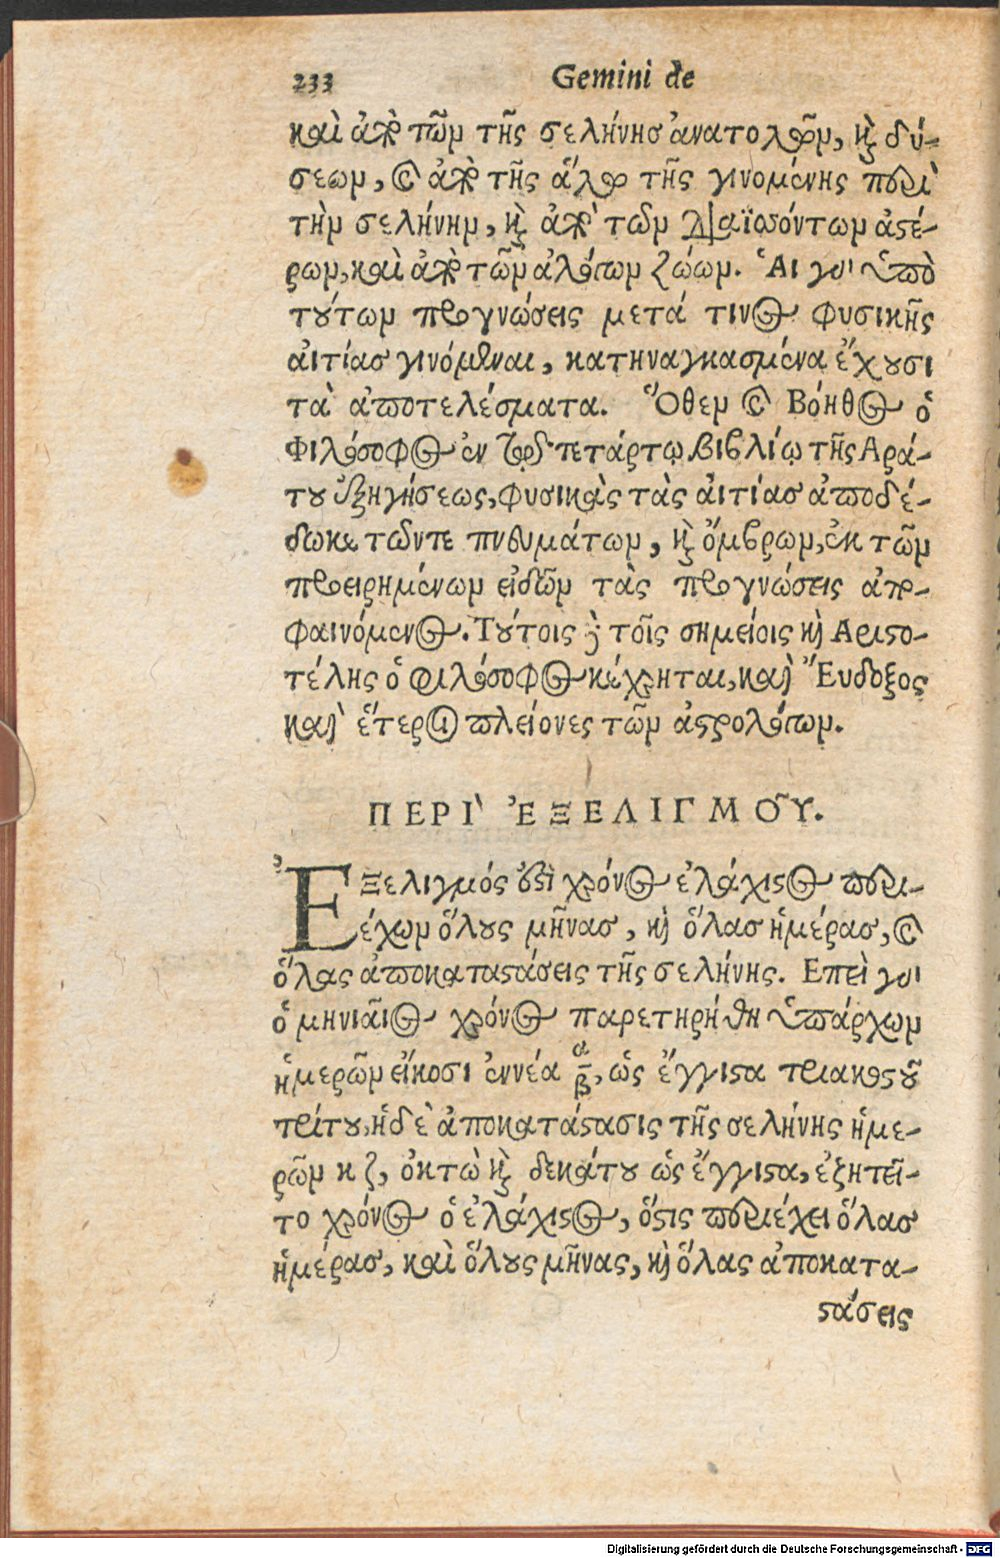 233 Gemini de
καὶ ἀπὸ τῶν τῆς σελήνης ἀνατολῶν, καὶ δύ-
σεων, καὶ ἀπὸ τῆς ἅλω τῆς γινομένης περὶ
τὴν σελήνην, καὶ ἀπὸ τῶν διαϊσσόντων ἀστέ-
ρων, καὶ ἀπὸ τῶν ἀλόγων ζώων. Ἁι γὰρ ὑπὸ
τούτων προγνώσεις μετά τινος φυσικῆς
ἀιτίας γινόμεναι, κατηναγκασμένα ἔχουσι
τὰ ἀποτελέσματα. Ὅθεν καὶ Βόηθος ὁ
φιλόσοφος ἐν τῷ τετάρτῳ βιβλίῳ τῆς Αρά-
του ἐξηγήσεως, φυσικὰς τὰς ἀιτίας ἀποδέ-
δωκε τῶντε πνευμάτων, καὶ ὄμβρων, ἐκ τῶν
προειρημένων εἰδῶν τὰς προγνώσεις ἀπο-
φαινόμενος. Τούτοις δὲ τοῖς σημείοις καὶ Αριστο-
τέλης ὁ φιλόσοφος κέχρηται, καὶ Ἔυδοξος
καὶ ἕτεροι πλείονες τῶν ἀστρολόγων.
ΠΕΡΙ` ἘΞΕΛΙΓΜΟΥ͂.
Ἐξελιγμός ἐστὶ χρόνος ἐλάχιστος περι-
έχων ὅλους μῆνας, καὶ ὅλας ἡμέρας, καὶ
ὅλας ἀποκαταστάσεις τῆς σελήνης. Επεὶ γὰρ
ὁ μηνιαῖος χρόνος παρετηρήθη ὑπάρχων
ἡμερῶν εἴκοσι ἐννέα α/β, ὡς ἔγγιστα τριακοστοῦ
τρίτου, ἡ δὲ ἀποκατάστασις τῆς σελήνης ἡμε-
ρῶν κζ, ὀκτὼ καὶ δεκάτου ὡς ἔγγιστα, ἐζητεῖ-
το χρόνος ὁ ἐλάχιστος, ὅστις περιέχει ὅλας
ἡμέρας, καὶ ὅλους μῆνας, καὶ ὅλας ἀποκατα-
στάσεις
Digitalisierung gefördert durch die Deutsche Forschungsgemeinschaft - DFG